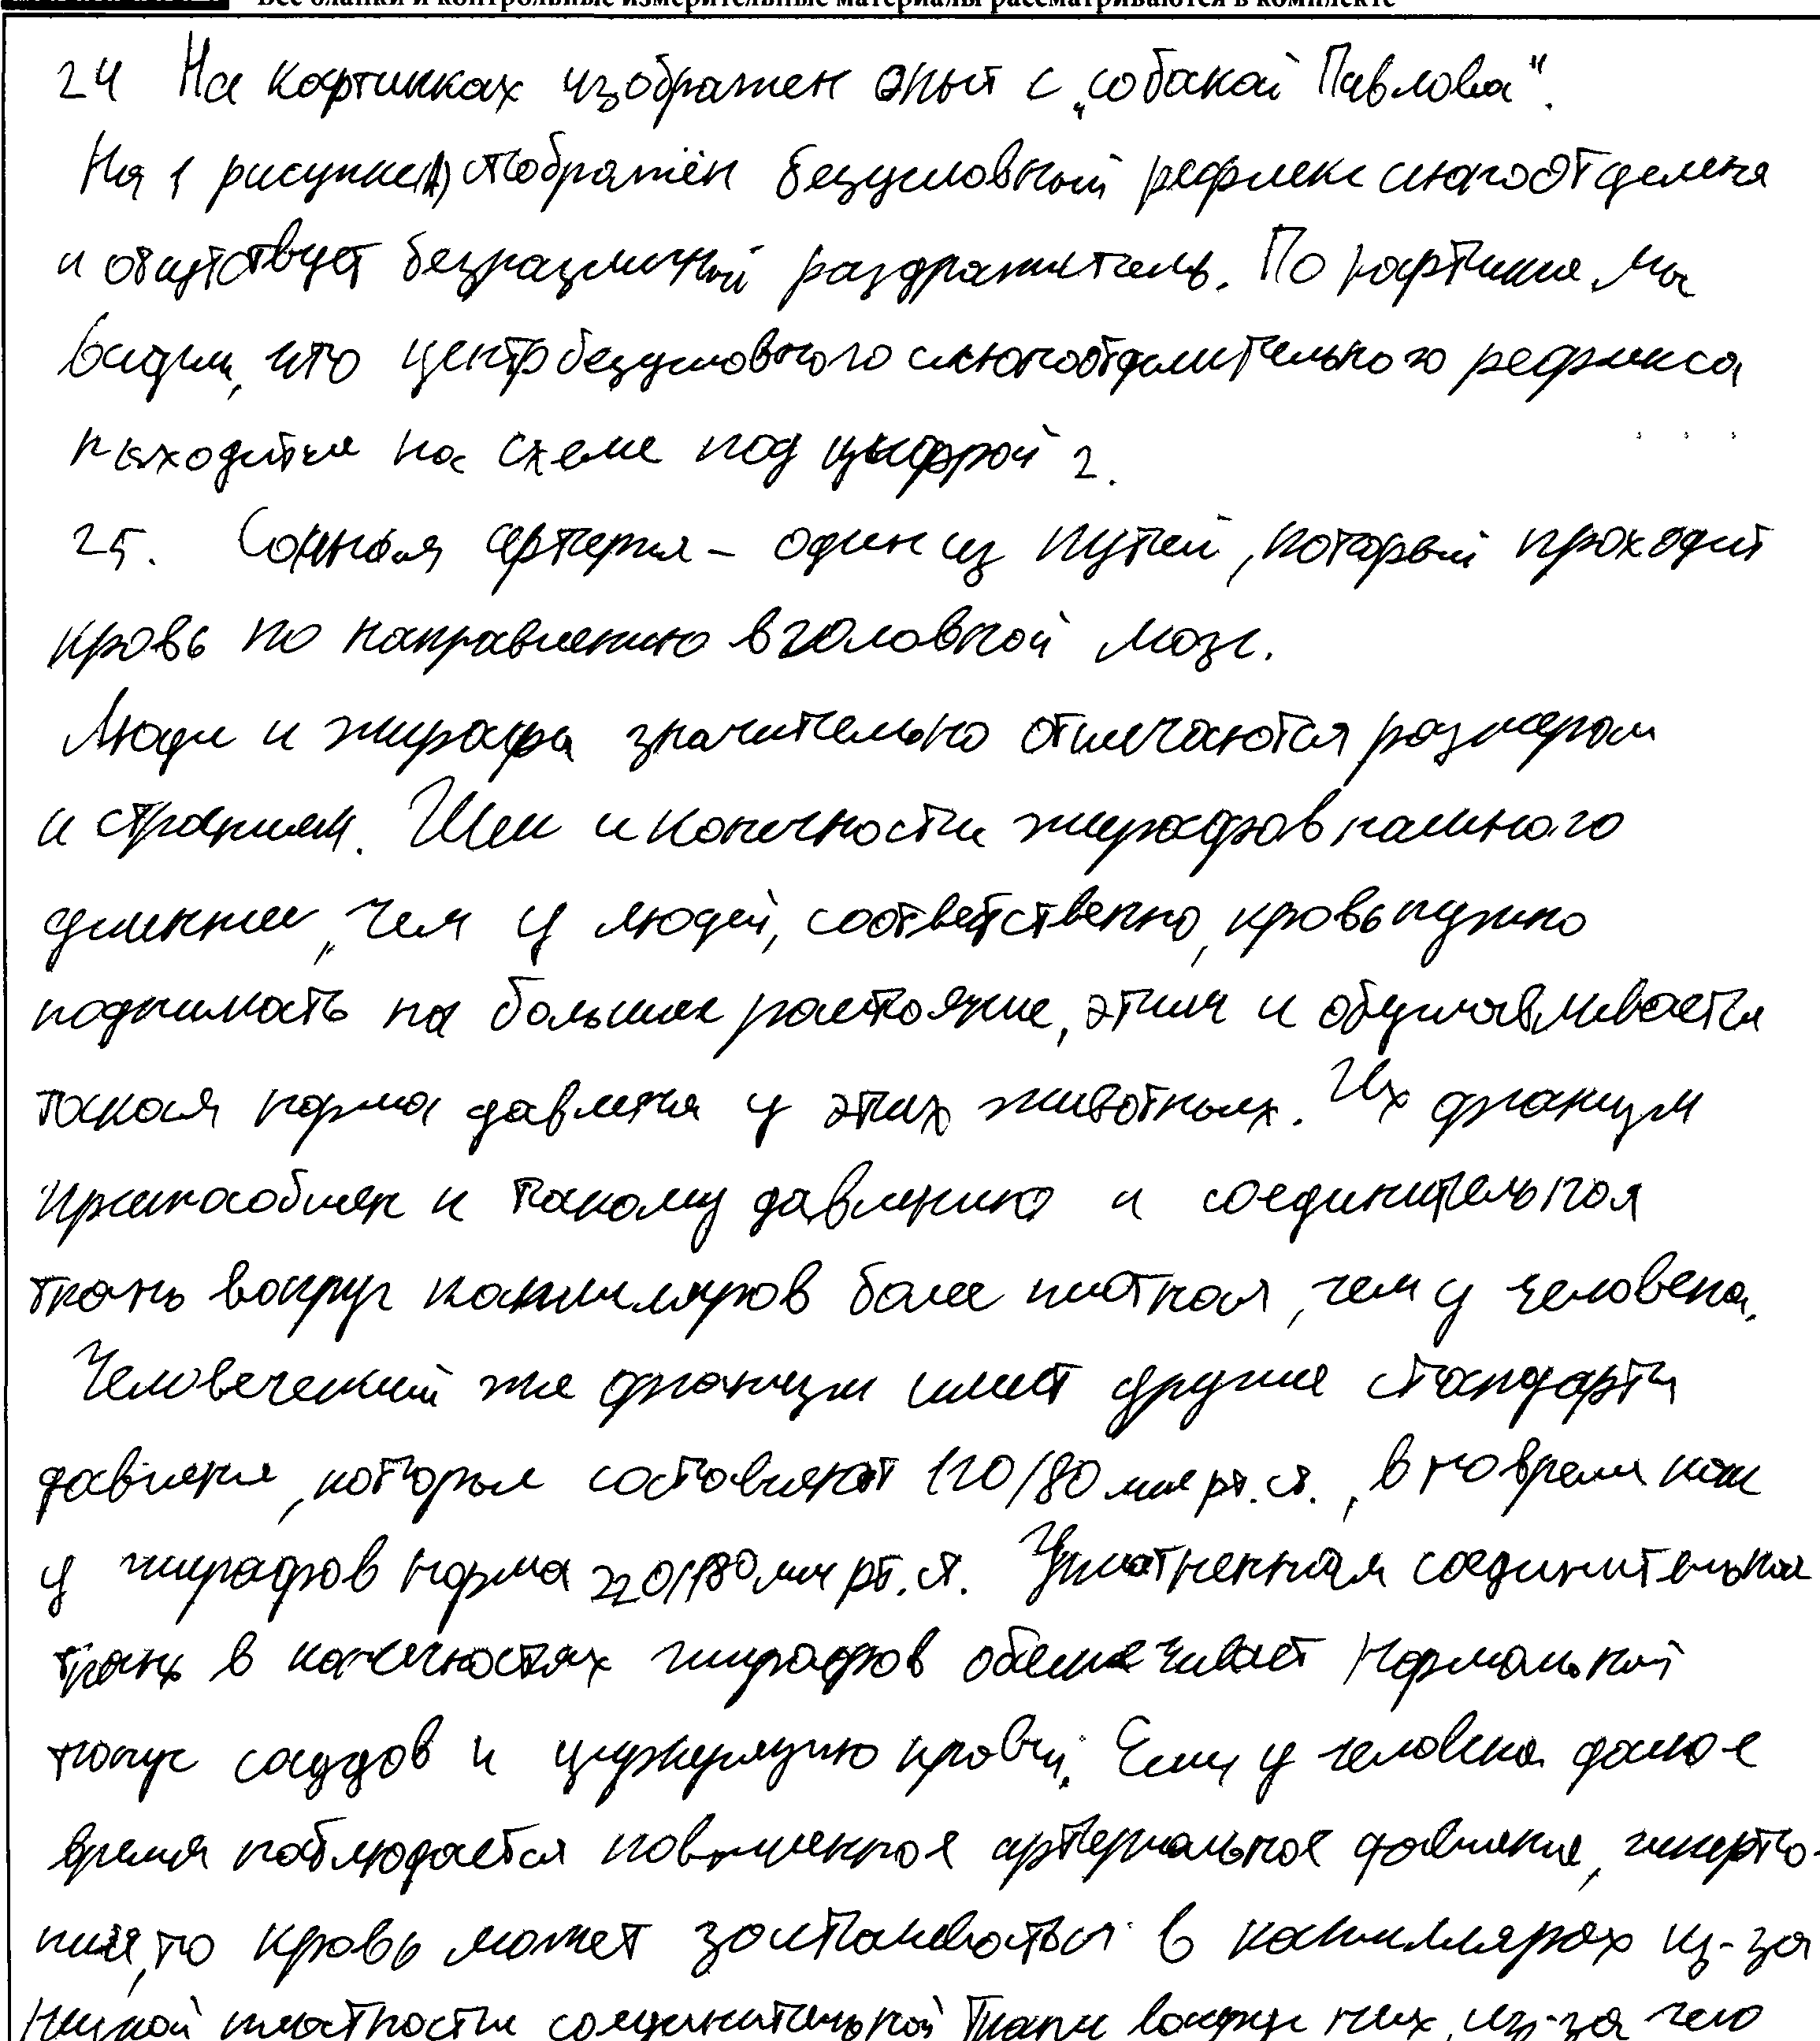 Все бланки и контрольные измерительные материалы рассматриваются в комплекте
24 На картинках изображен опыт с „собакой Павлова".
На 1 рисунке(А) отображён безусловный рефлекс слюноотделения
и отсутствует безразличный раздражитель. По картинке мы
видим, что центр безусловного слюноотделительного рефлекса
находится на схеме под цифрой 2.
25. Сонная артерия – один из путей, который проходит
кровь по направлению в головной мозг.
Люди и жирафы значительно отличаются размером
и строением. Шеи и конечности жирафов намного
длиннее, чем у людей, соответственно, кровь нужно
поднимать на большее расстояние, этим и обуславливается
такая норма давления у этих животных. Их организм
приспособлен к такому давлению и соединительная
ткань вокруг капилляров более плотная, чем у человека.
Человеческий же организм имеет другие стандарты
давления, которые составляют 120/80 мм рт. ст., в то время как
у жирафов норма 220/180 мм рт. ст. Уплотненная соединительная
ткань в конечностях жирафов обеспечивает нормальный
тонус сосудов и циркуляцию крови. Если у человека долгое
время наблюдается повышенное артериальное давление, гиперто-
ния, то кровь может застаиваться в капиллярах из-за
низкой плотности соединительной ткани вокруг них, из-за чего